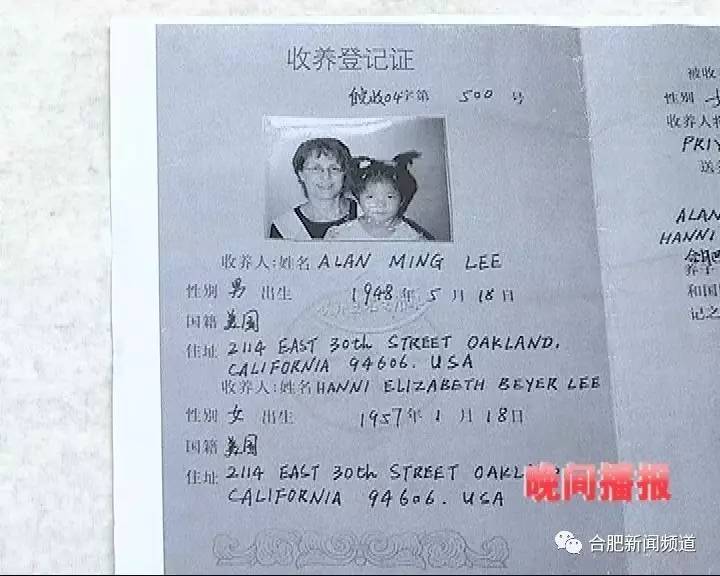 收养登记证
皖收04字第 500 号
收养人:姓名 ALAN MING LEE
性别 男 出生 1948年 5 月 18 日
国籍 美国
住址 2114 EAST 30th STREET OAKLAND,
CALIFORNIA 94606. USA
收养人:姓名 HANNI ELIZABETH BEYER LEE
性别 女 出生 1957年 1 月 18日
国籍 美国
住址 2114 EAST 30th STREET OAKL
CALIFORNIA 94606. USA
被收
性别 女
收养人
PRIY
送
ALAN
HANNI
合肥
养子
和国
记之
晚间播报
合肥新闻频道